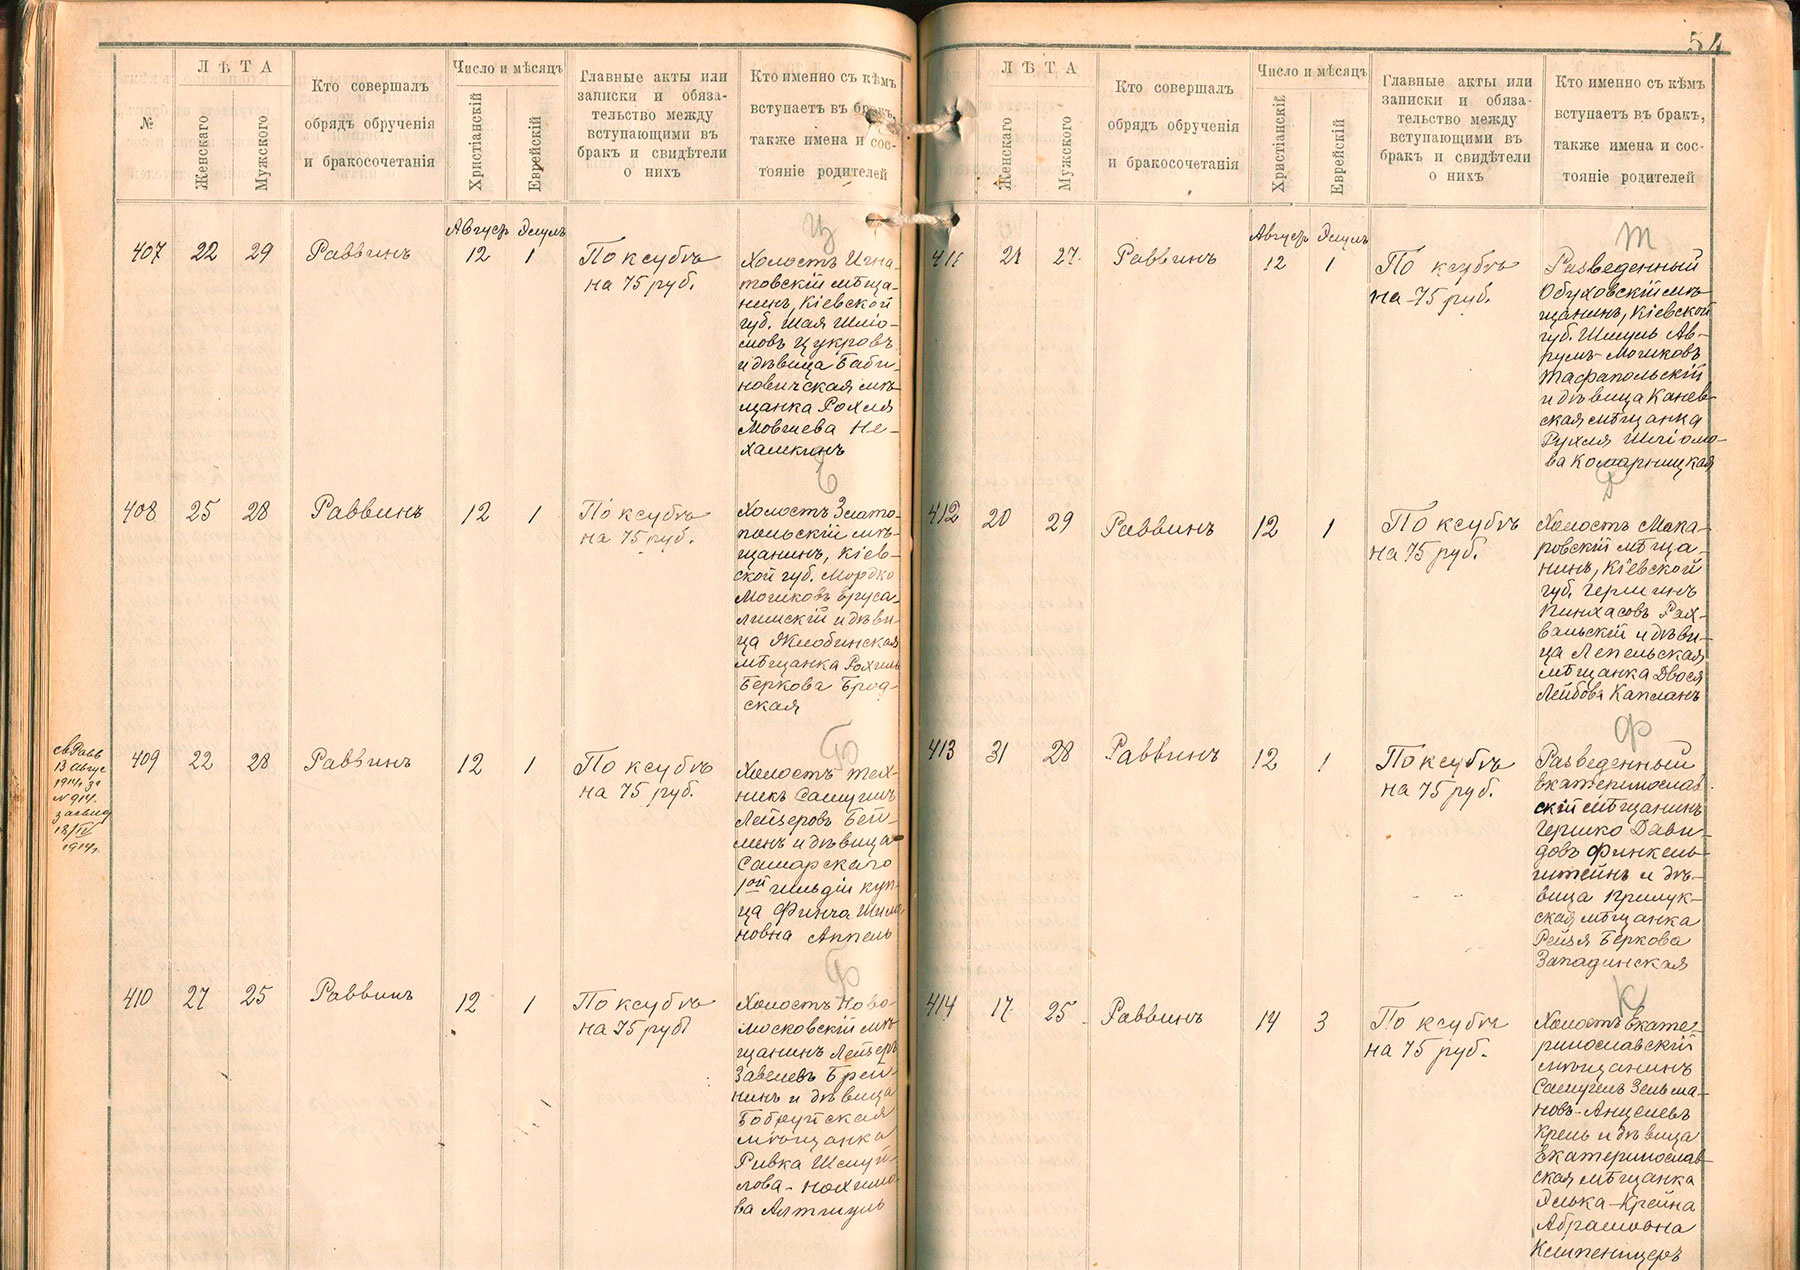 54
№
ЛѢТА
Женскаго
Мужского
Кто совершалъ
обрядъ обрученія
и бракосочетанія
Число и мѣсяцъ
Христіанскій
Еврейскій
Главные акты или
записки и обяза-
тельство между
вступающими въ
бракъ и свидѣтели
о нихъ
Кто именно съ кѣмъ
вступаетъ въ бракъ,
также имена и сос-
тояніе родителей
Август Элулъ
407 22 29 Раввинъ 12 1
По ксубѣ
на 75 руб.
Ц
Холостъ Игна-
товскій мѣща-
нинъ, Кіевской
губ. Шая Шліо-
мовъ Цукровъ
и дѣвица Баби-
новичская мѣ-
щанка Рохля
Мовшева Не-
хамкинъ
408 25 28 Раввинъ 12 1
По ксубѣ
на 75 руб.
Е
Холостъ Злато-
польскій мѣ-
щанинъ, Кіев-
ской губ. Мордко
Мошковъ Еруса-
лимскій и дѣви-
ца Жлобинская
мѣщанка Рохиль
Беркова Брод-
ская
13 Авгус
1914 за
№ 914.
18/IV
1914 г.
409 22 28 Раввинъ 12 1
По ксубѣ
на 75 руб.
Б
Холостъ тех-
никъ Самуилъ
Лейзеровъ Бей-
линъ и дѣвица
Самарскаго
1ой гильдіи куп-
ца Финча Шимо
новна Аппель
410 27 25 Раввинъ 12 1
По ксубѣ
на 75 руб
Холостъ Ново-
московскій мѣ-
щанинъ Лейзеръ
Завелевъ Брей-
нинъ и дѣвица
Бобруйская
мѣщанка
Ривка Шмуй-
лова-Нохимо-
ва Алтшуль
ЛѢТА
Женскаго
Мужского
Кто совершалъ
обрядъ обрученія
и бракосочетанія
Число и мѣсяцъ
Христіанскіе
Еврейскій
Главные акты или
записки и обяза-
тельство между
вступающими въ
бракъ и свидѣтели
о нихъ
Кто именно съ кѣмъ
вступаетъ въ бракъ,
также имена и сос-
тояніе родителей
Август Элулъ
411 21 27 Раввинъ 12 1
По ксубѣ
на 75 руб.
Т
Разведенный
Обуховскій мѣ-
щанинъ, Кіевской
губ. Шмуль Ав-
румъ-Мошковъ
Тафапольскій
и дѣвица Канев-
ская мѣщанка
Рухля Шліомо-
ва Комарницкая
412 20 29 Раввинъ 12 1
По ксубѣ
на 75 руб.
Холостъ Мака-
ровскій мѣща-
нинъ, Кіевской
губ. Гершинъ
Пинхасовъ Рах-
вальскій и дѣви-
ца Лепельская
мѣщанка Двося
Лейбова Капланъ
413 31 28 Раввинъ 12 1
По ксубѣ
на 75 руб.
Ф
Разведенный
Екатеринослав
скій мѣщанинъ
Гершко Дави-
довъ Финкель-
штейнъ и дѣ-
вица Прилук-
ская мѣщанка
Рейзя Беркова
Западинская
414 17 25 Раввинъ 14 3
По ксубѣ
на 75 руб.
К
Холостъ Екате-
ринославскій
мѣщанинъ
Самуилъ Зельма-
новъ-Анцелевъ
Крель и дѣвица
Екатеринослав-
ская мѣщанка
Элька-Крейна
Абрамовна
Клипеницеръ